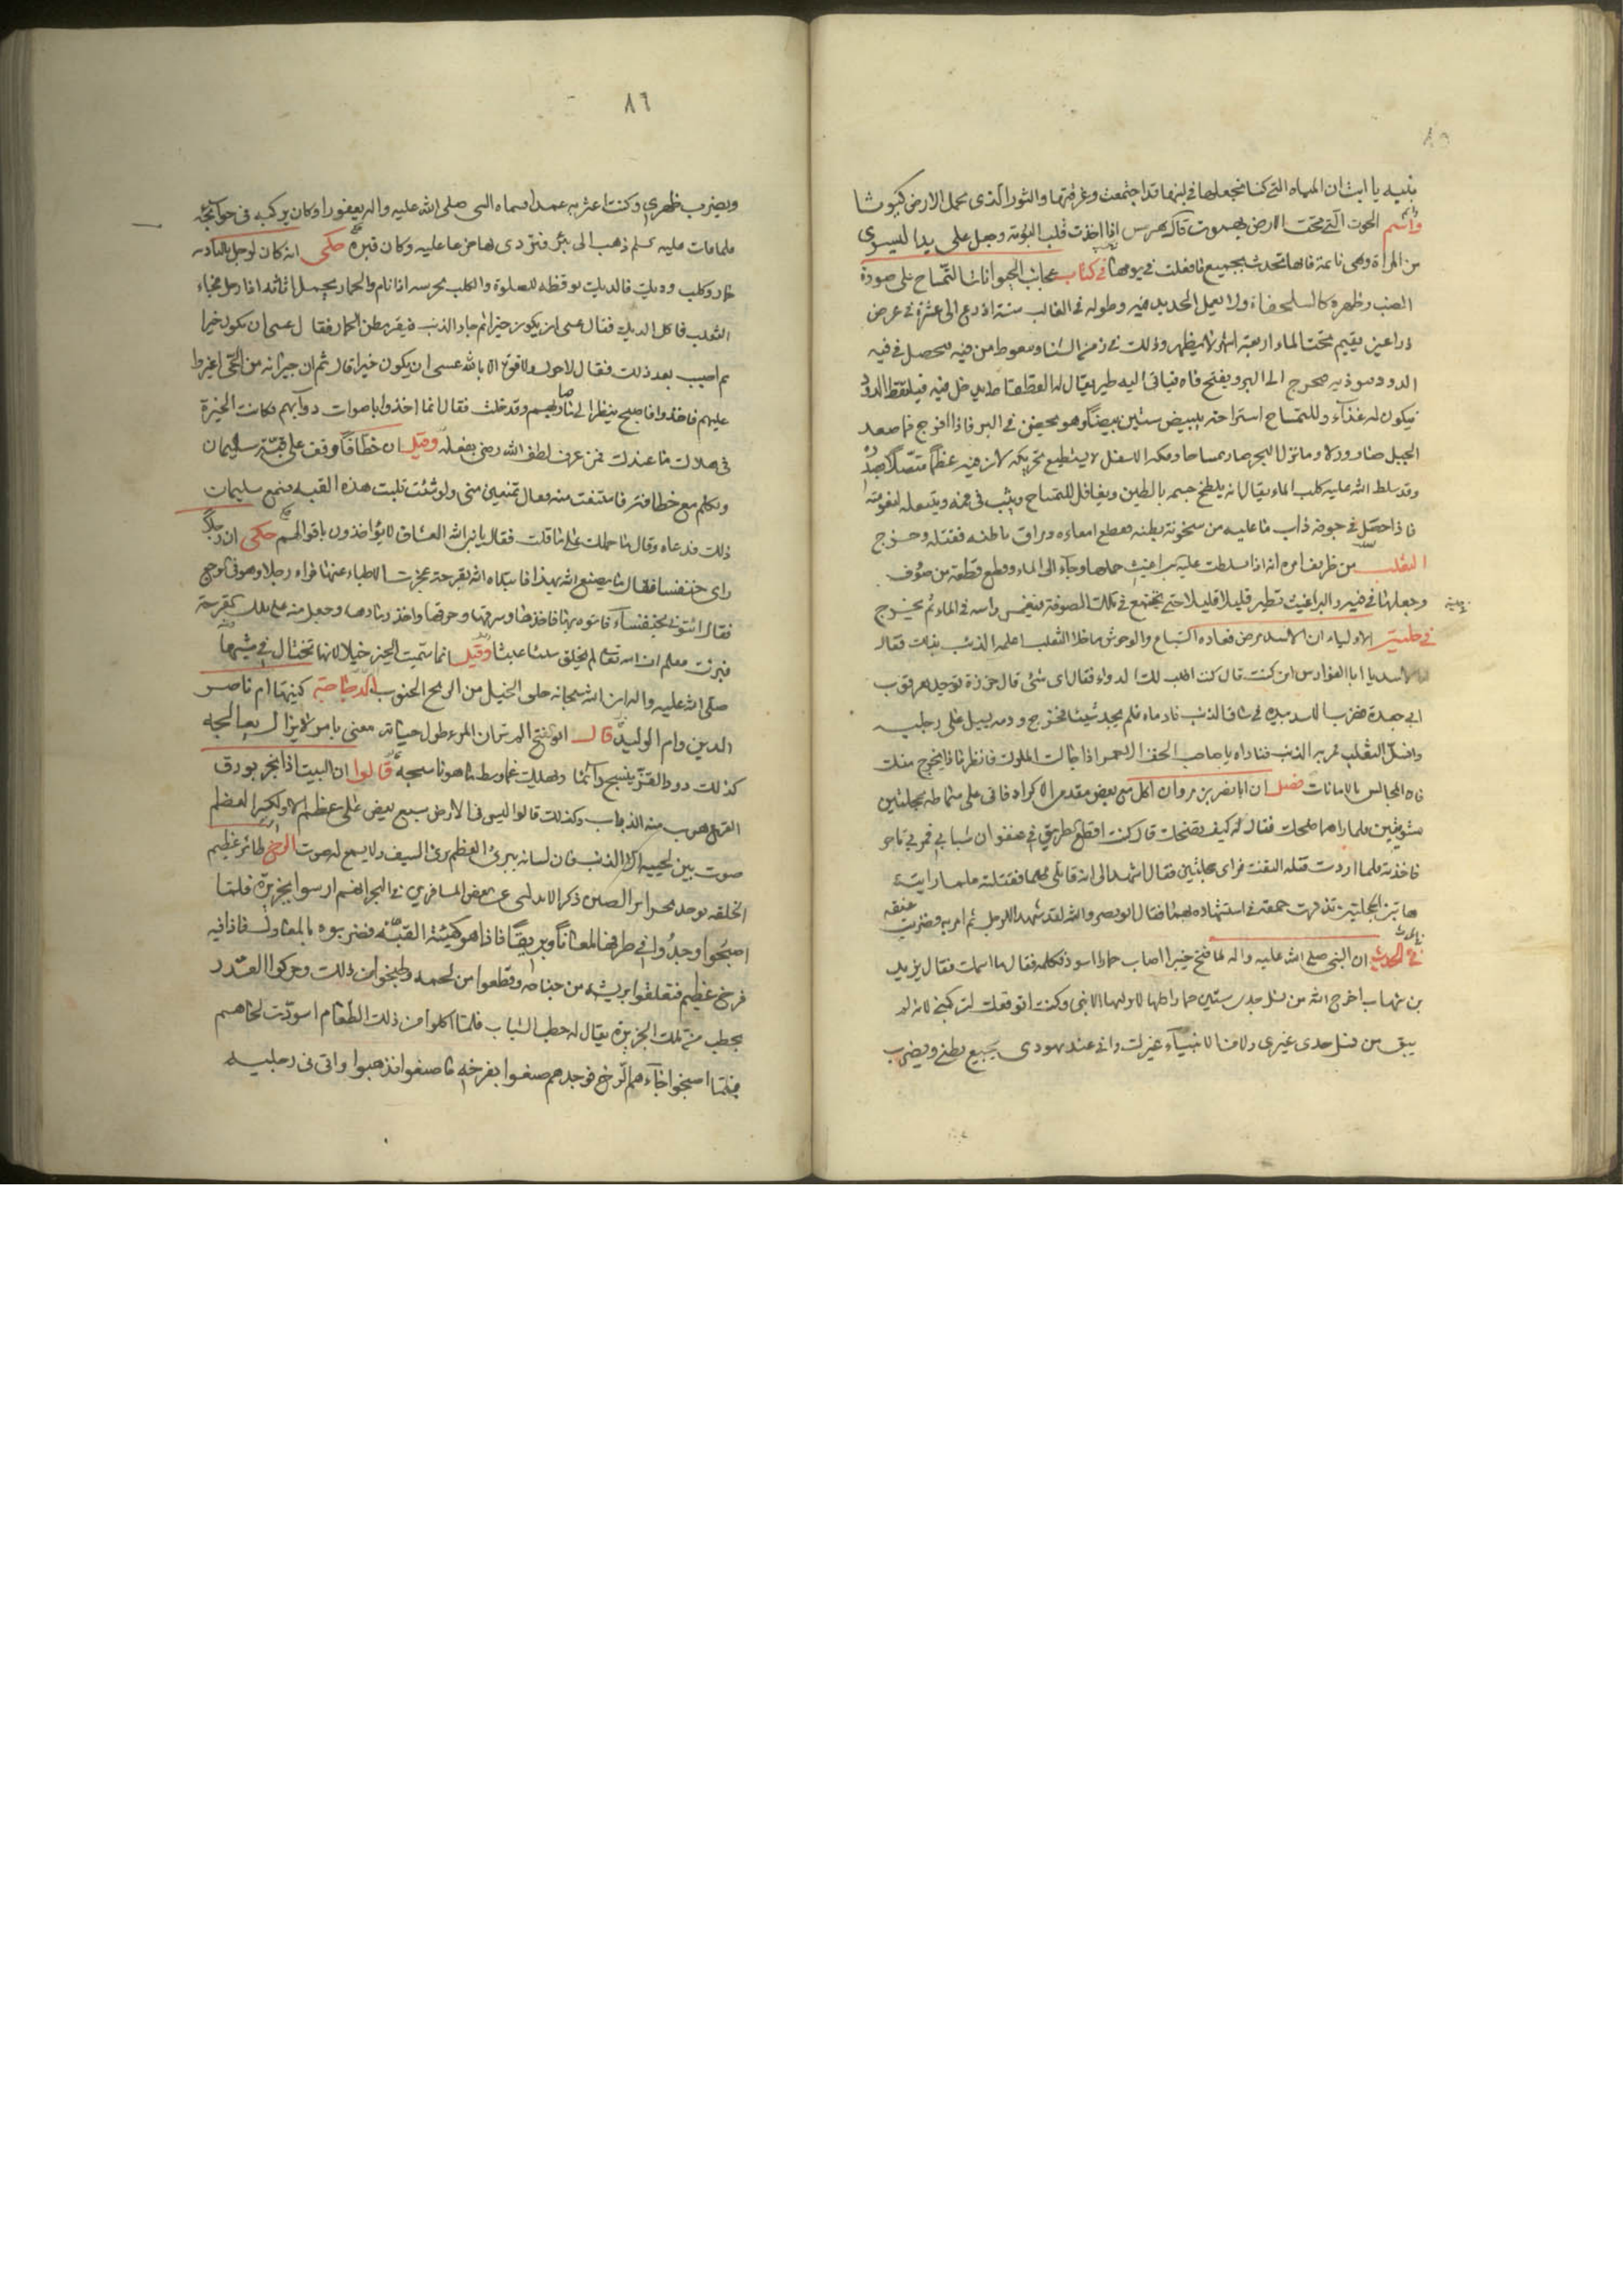 ٨٥
بنيه يا ابت ان المياه التي كنا نجعلها في لبنها قد اجتمعت وغرقتها والثور الذي يحمل الارض كيوثا
واسم الحوت التي تحت الارض بهموت قال هرس اذا اخذت قلب البومة وجعل على يدا ليسرى
من المراة وهي نائمة فانها تتحدث بجميع ما فعلت في يومها في كتاب عجائب الحيوانات التمساح على صورة
الضب وظهره كالسلحفاة ولا يعمل الحديد فيه وطوله في الغالب ستة اذرع الى عشرة في عرض
ذراعين يقيم تحت الماء اربعة اشهر لا يظهر وذلك في زمن الشتاء ويتغوط من فيه فيحصل في فيه
الدود فيوذيه فيخرج الى البر ويفتح فاه فياتي اليه طير يقال له القطقاط يدخل فيه فيلقط الدود
فيكون له غذاء وللتمساح استراحة يبيض ستين بيضة وهو يحضن في البر فاذا افرخ فما صعد
الجبل صار ورلا وما نزل البحر صار تمساحا وفكه الاسفل لا يستطيع تحريكه لان فيه عظما متصلا بصدره
وقد سلط الله عليه كلب الماء يقال انه يلطخ جسمه بالطين ويغافل التمساح ويثب في فمه ويبتلعه لنعومته
فاذا حصل في جوفه ذاب ما عليه من سخونة بطنه فيقطع امعاءه ومراق باطنه فقتله وخرج
الثعلب من ظريف امره انه اذا تسلطت عليه البراغيث حملها وجاء الى الماء وقطع قطعة من صوف
وجعلها في فيه والبراغيث تطير قليلا قليلا حتى تجتمع في تلك الصوفة فيغمس راسه في الماء ثم يخرج
في حلية الاولياء ان الاسد مرض فعاده السباع والوحوش ما خلا الثعلب اعلمه الذئب بذلك فقال
الاسد يا ابا الفوارس اين كنت قال كنت اطلب لك الدواء فقال اي شئ قال خرزة توجد بعرقوب
ابي جعدة فضرب الاسد بيده في ساق الذئب فادماه فلم يجد شيئا فخرج ودمه يسيل على رجليه
وانسل الثعلب فمر به الذئب فناداه يا صاحب الخف الاحمر اذا جالست الملوك فانظر ماذا يخرج منك
فان المجالس بالامانات فصل ان ابا نصر بن مروان اكل مع بعض مقدمي الاكراد فاتى على سماطه بحجلتين
مشويتين فلما راهما ضحك فقال له كيف تضحك قال كنت اقطع الطريق في عنفوان شبابي فمر بي تاجر
فاخذته فلما اردت قتله التفت فراى حجلتين فقال اشهدا لي انه قاتلي ظلما فقتلته فلما رايت
هاتين الحجلتين تذكرت حمقه في استشهاده بهما فقال ابو نصر والله لقد شهدا للرجل ثم امر به فضربت عنقه
في الحديث ان النبي صلى الله عليه واله لما فتح خيبر اصاب حمارا اسود فكلمه فقال ما اسمك فقال يزيد
بن شهاب اخرج الله من نسل جدي ستين حمارا كلها لا يركبها الا نبي وكنت اتوقعك لتركبني لانه لم
يبق من نسل جدي غيري ولا من الانبياء غيرك واني عند يهودي يجيع بطني ويضرب
٨٦
ويضرب ظهري وكنت اعثر به عمدا فسماه النبي صلى الله عليه واله يعفورا وكان يركبه في حوائجه
فلما مات عليه السلم ذهب الى بئر فتردى بها جزعا عليه وكان قبره حكى انه كان لرجل بالبادية
حمار وكلب وديك فالديك يوقظه للصلوة والكلب يحرسه اذا نام والحمار يحمل اثاثه اذا رحل فجاء
الثعلب فاكل الديك فقال عسى ان يكون خيرا ثم جاء الذئب فبقر بطن الحمار فقال عسى ان يكون خيرا
ثم اصيب بعد ذلك فقال لاحول ولا قوة الا بالله عسى ان يكون خيرا قال ثم ان جيرانه من الحي اغير
عليهم فاخذوا فاصبح ينظر الى منازلهم وقد خلت فقال انما اخذوا باصوات دوابهم فكانت الخيرة
في هلاك ما عندك فمن عرف لطف الله رضي بفعله وقيل ان خطافا وقف على قبة سليمان
وتكلم مع خطافة فامتنعت منه فقال تمتنعين مني ولو شئت قلبت هذه القبة فسمع سليمان
ذلك فدعاه وقال ما حملك على ما قلت فقال يا نبي الله العشاق لا يؤاخذون باقوالهم حكى ان رجلا
راى خنفسا فقال ما يصنع الله بهذا فابتلاه الله بقرحة عجزت الاطباء عنها فراه رجل وهو في وجع
فقال ائتوني بخنفساء فاتوه بها فاخذها وحرقها واخذ رمادها وجعل منه على تلك القرحة
فبرئت فعلم ان الله تعالى لم يخلق شيئا عبثا وقيل انما سميت الخيل خيلا لانها تختال في مشيتها
صلى الله عليه واله ان الله سبحانه خلق الخيل من الريح الجنوب الدجاجة كنيتها ام ناصر
الدين وام الوليد قال ابو الفتح الم تر ان المرء طول حياته معنى بامر لا يزال يعالجه
كذلك دود القز ينسج دائما ويهلك غما وسط ما هو ناسجه قالوا ان البيت اذا بخر بورق
القرع هرب منه الذباب وكذلك قالوا ليس في الارض سبع يعض على عظم الا ولكسر العظم
صوت بين لحييه الا الذئب فان لسانه يبري العظم بري السيف ولا يسمع له صوت الرخ طائر عظيم
الخلقة يوجد بجزائر الصين ذكر الاندلسي عن بعض المسافرين في البحر انهم ارسوا بجزيرة فلما
اصبحوا وجدوا في طرفها لمعانا وبريقا فاذا هو كهيئة القبة فضربوه بالمعاول فاذا فيه
فرخ عظيم فتعلقوا بريشة من جناحه وقطعوا من لحمه وطبخوا من ذلك وحركوا القدر
بحطب من تلك الجزيرة يقال له حطب الشباب فلما اكلوا من ذلك الطعام اسودت لحاهم
فلما اصبحوا جاءهم الرخ فوجدهم صنعوا بفرخه ما صنعوا فذهبوا واتى في رجليه